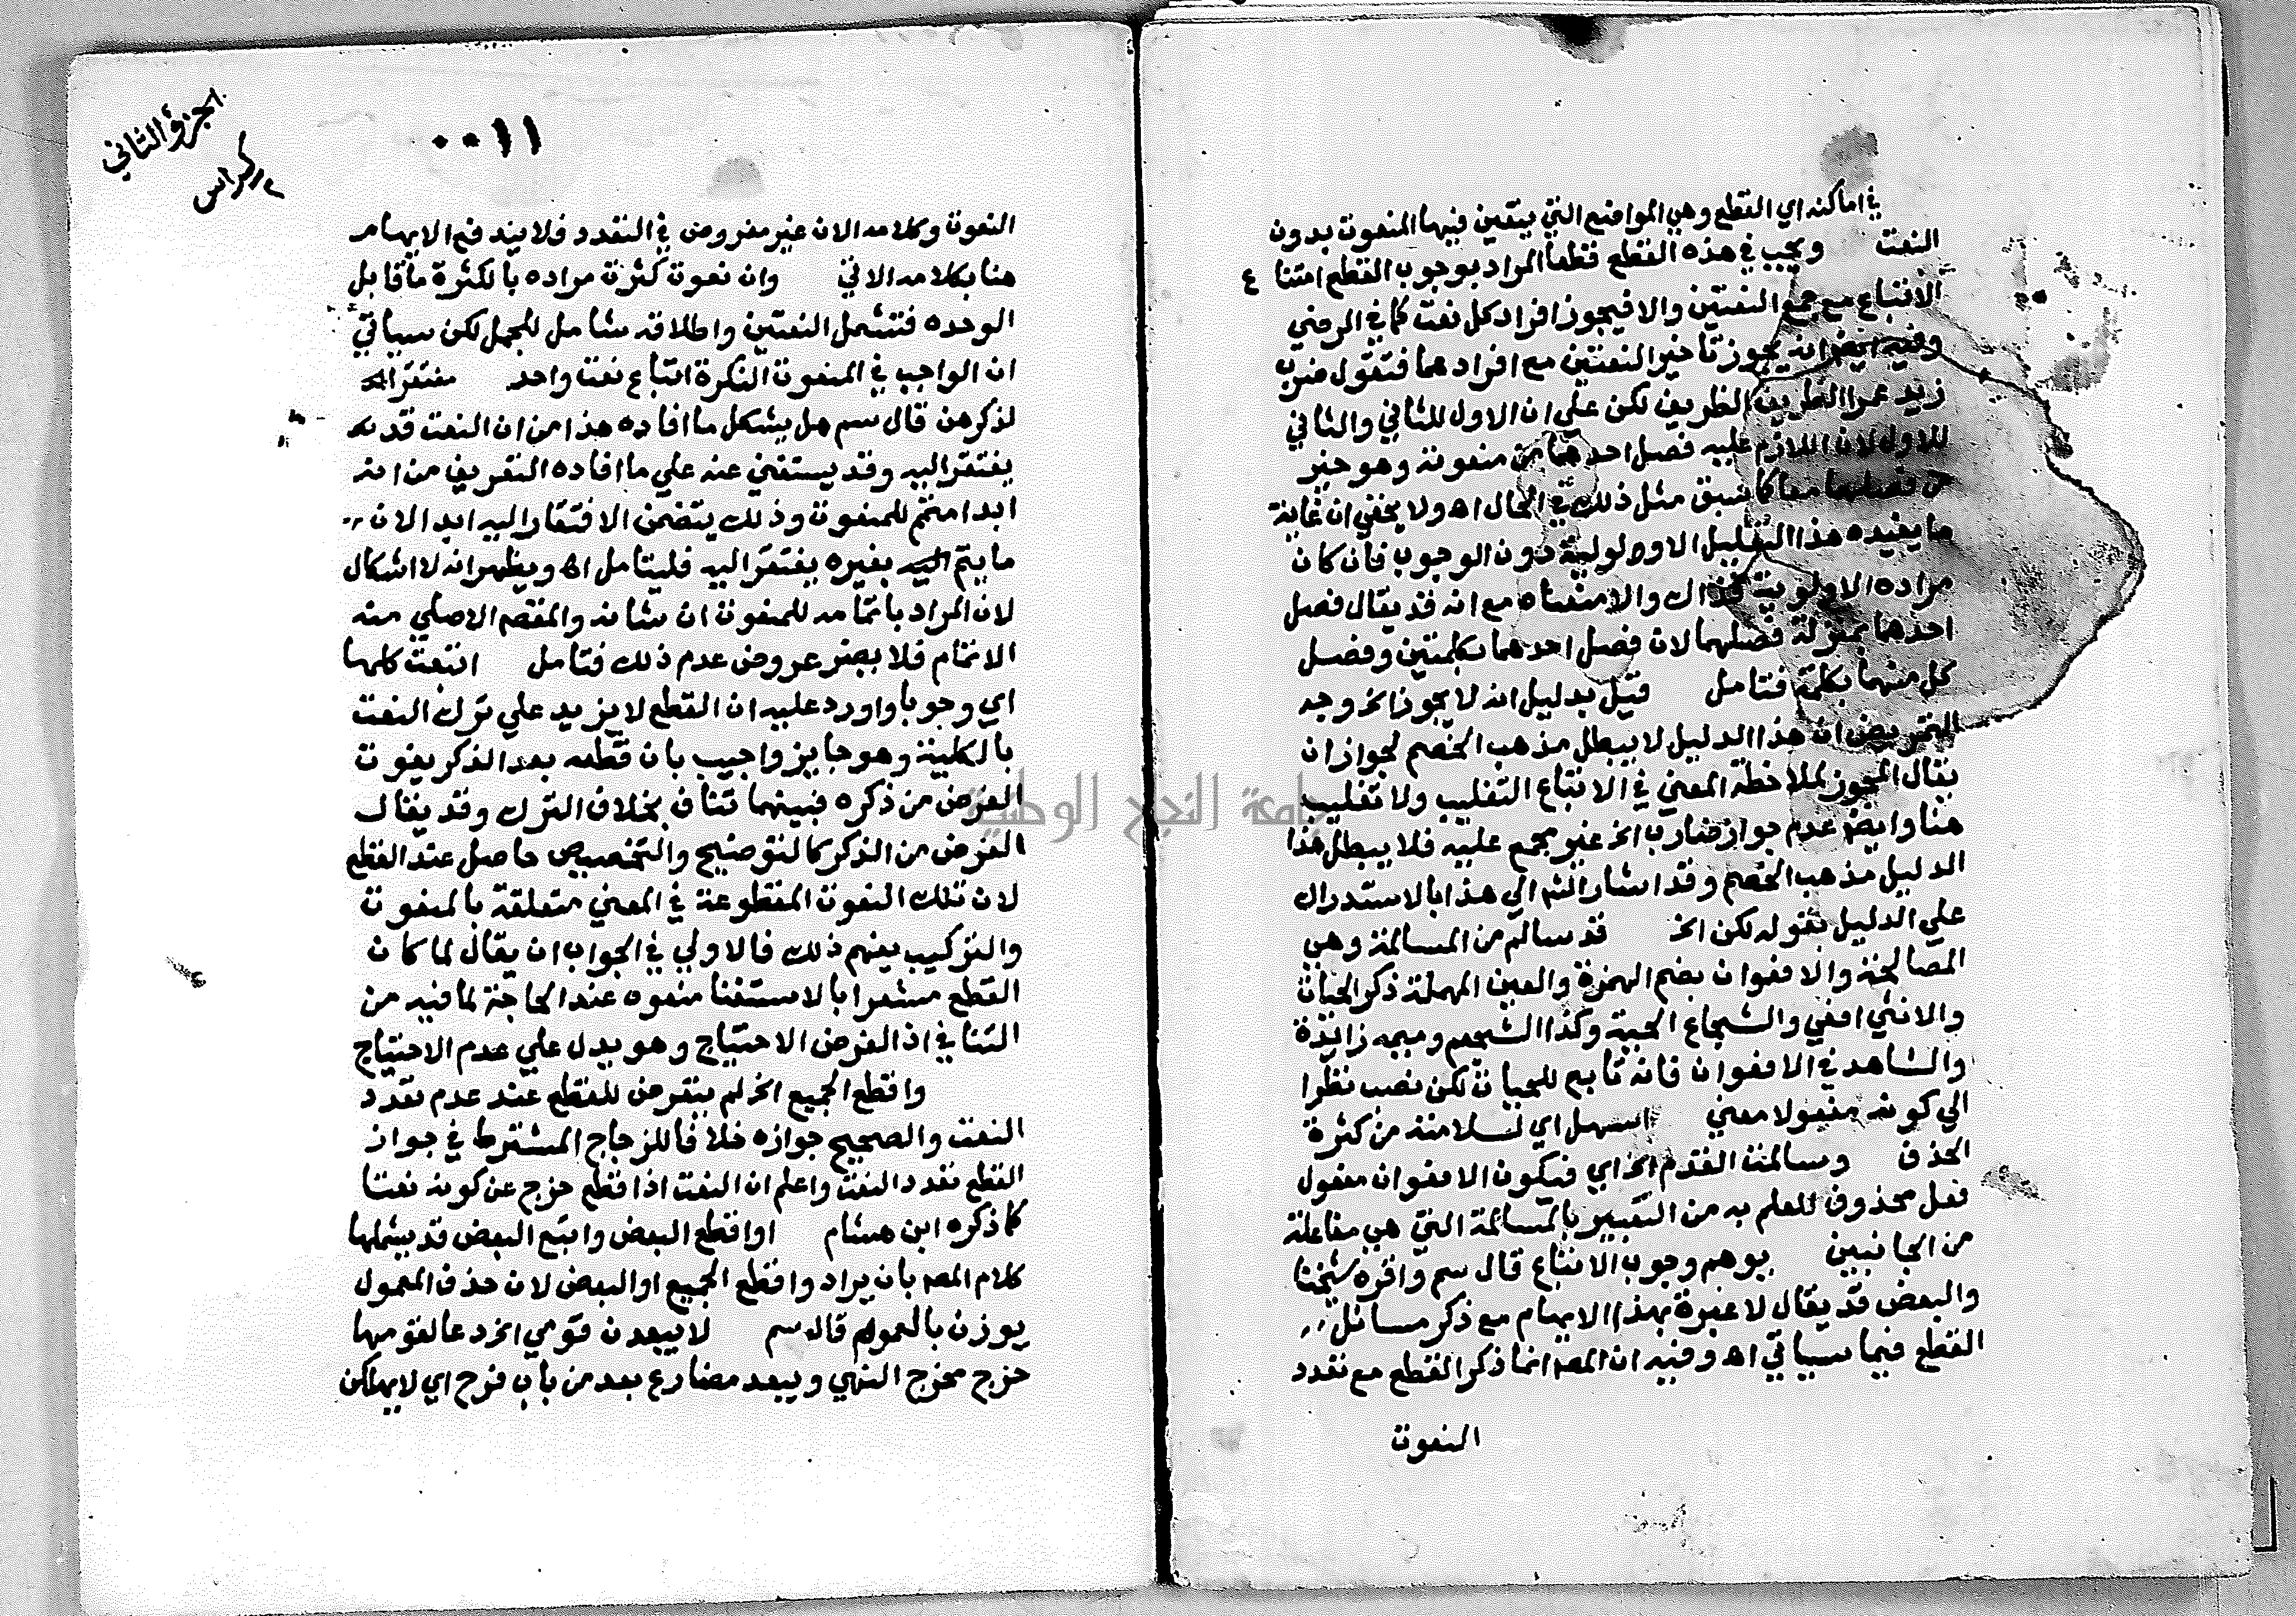 في اماكنه اي القطع وهي المواضع التي يتعين فيها المنعوت بدون
النعت ويجب في هذه القطع قطعا المراد بوجوب القطع امتنا ع
الاتباع مع جمع النعتين والا فيجوز افراد كل نعت كما في الرضي
وفيه ايضا انه يجوز تاخير النعتين مع افرادهما فتقول ضرب
زيد عمرا الظريف الظريف لكن علي ان الاول للثاني والثاني
للاول لان اللازم عليه فصل احدهما من منعوته وهو خير
من فصلهما معا كما سبق مثل ذلك في الحال اه ولا يخفي ان غاية
ما يفيده هذا التعليل الاولوية دون الوجوب فان كان
مراده الاولوية فذاك والا منعناه مع انه قد يقال فصل
احدهما بمنزلة فصلهما لان فصل احدهما بكلمتين وفصل
كل منهما بكلمة فتامل قيل بدليل انه لا يجوز الخ وجه
التمريض ان هذا الدليل لا يبطل مذهب الخصم لجواز ان
يقال المجوز لملاحظة المعني في الاتباع التغليب ولا تغليب
هنا وايضا عدم جواز ضارب الخ غير مجمع عليه فلا يبطل هذا
الدليل مذهب الخصم وقد اشار الشم الي هذا بالاستدراك
علي الدليل بقوله لكن الخ قد سالم من المسالمة وهي
المصالحة والافعوان بضم الهمزة والعين المهملة ذكر الحيات
والانثي افعي والشجاع الحية وكذا الشجعم وميمه زايدة
والشاهد في الافعوان فانه تابع للحيات لكن نصب نظرا
الي كونه مفعولا معني اسهل اي لسلامته من كثرة
الحذف وسالمت القدم الخ اي فيكون الافعوان مفعول
فعل محذوف للعلم به من التعبير بالمسالمة التي هي مفاعلة
من الجانبين يوهم وجوب الاتباع قال سم واقره شيخنا
والبعض قد يقال لا عبرة بهذا الايهام مع ذكر مسائل
القطع فيما سياتي اه وفيه ان المص انما ذكر القطع مع تعدد
النعوت
الجزؤ الثاني
كراس
١١٠٠
النعوت وكلامه الان غير مفروض في التعدد فلا يندفع الايهام
هنا بكلامه الاتي وان نعوت كثرت مراده بالكثرة ما قابل
الوحده فتشمل النعتين واطلاقه شامل للجمل لكن سياتي
ان الواجب في المنعوت النكرة اتباع نعت واحد مفتقرا
لذكرهن قال سم هل يشكل ما افاده هذا من ان النعت قد
يفتقر اليه وقد يستغني عنه علي ما افاده التعريف من انه
ابدا متم للمنعوت وذلك يتضمن الافتقار اليه ابدا لان
ما يتم بغيره يفتقر اليه فليتامل اه ويظهر انه لا اشكال
لان المراد باتمامه للمنعوت ان شانه والمقصم الاصلي منه
الاتمام فلا يضر عروض عدم ذلك فتامل اتبعت كلها
اي وجوبا واورد عليه ان القطع لا يزيد علي ترك النعت
بالكلية وهو جايز واجيب بان قطعه بعد الذكر يفوت
الغرض من ذكره فبينهما تناف بخلاف الترك وقد يقال
الغرض من الذكر كالتوضيح والتخصيص حاصل عند القطع
لان تلك النعوت المقطوعة في المعني متعلقة بالمنعوت
والتركيب يفهم ذلك فالاولي في الجواب ان يقال لما كان
القطع مشعرا بالاستغنا منعوه عند الحاجة لما فيه من
التنافي اذ الغرض الاحتياج وهو يدل علي عدم الاحتياج
واقطع الجميع الخ لم يتعرض للقطع عند عدم تعدد
النعت والصحيح جوازه خلافا للزجاج المشترط في جواز
القطع تعدد النعت واعلم ان النعت اذا قطع خرج عن كونه نعتا
كما ذكره ابن هشام او اقطع البعض واتبع البعض قد يشملها
كلام المص بان يراد واقطع الجميع او البعض لان حذف المعمول
يوزن بالعموم قاله سم لا يبعدن قومي الخ دعا لقومها
خرج مخرج النهي ويبعد مضارع بعد من باب فرح اي لا يهلكن
جامعة النجاح الوطنية